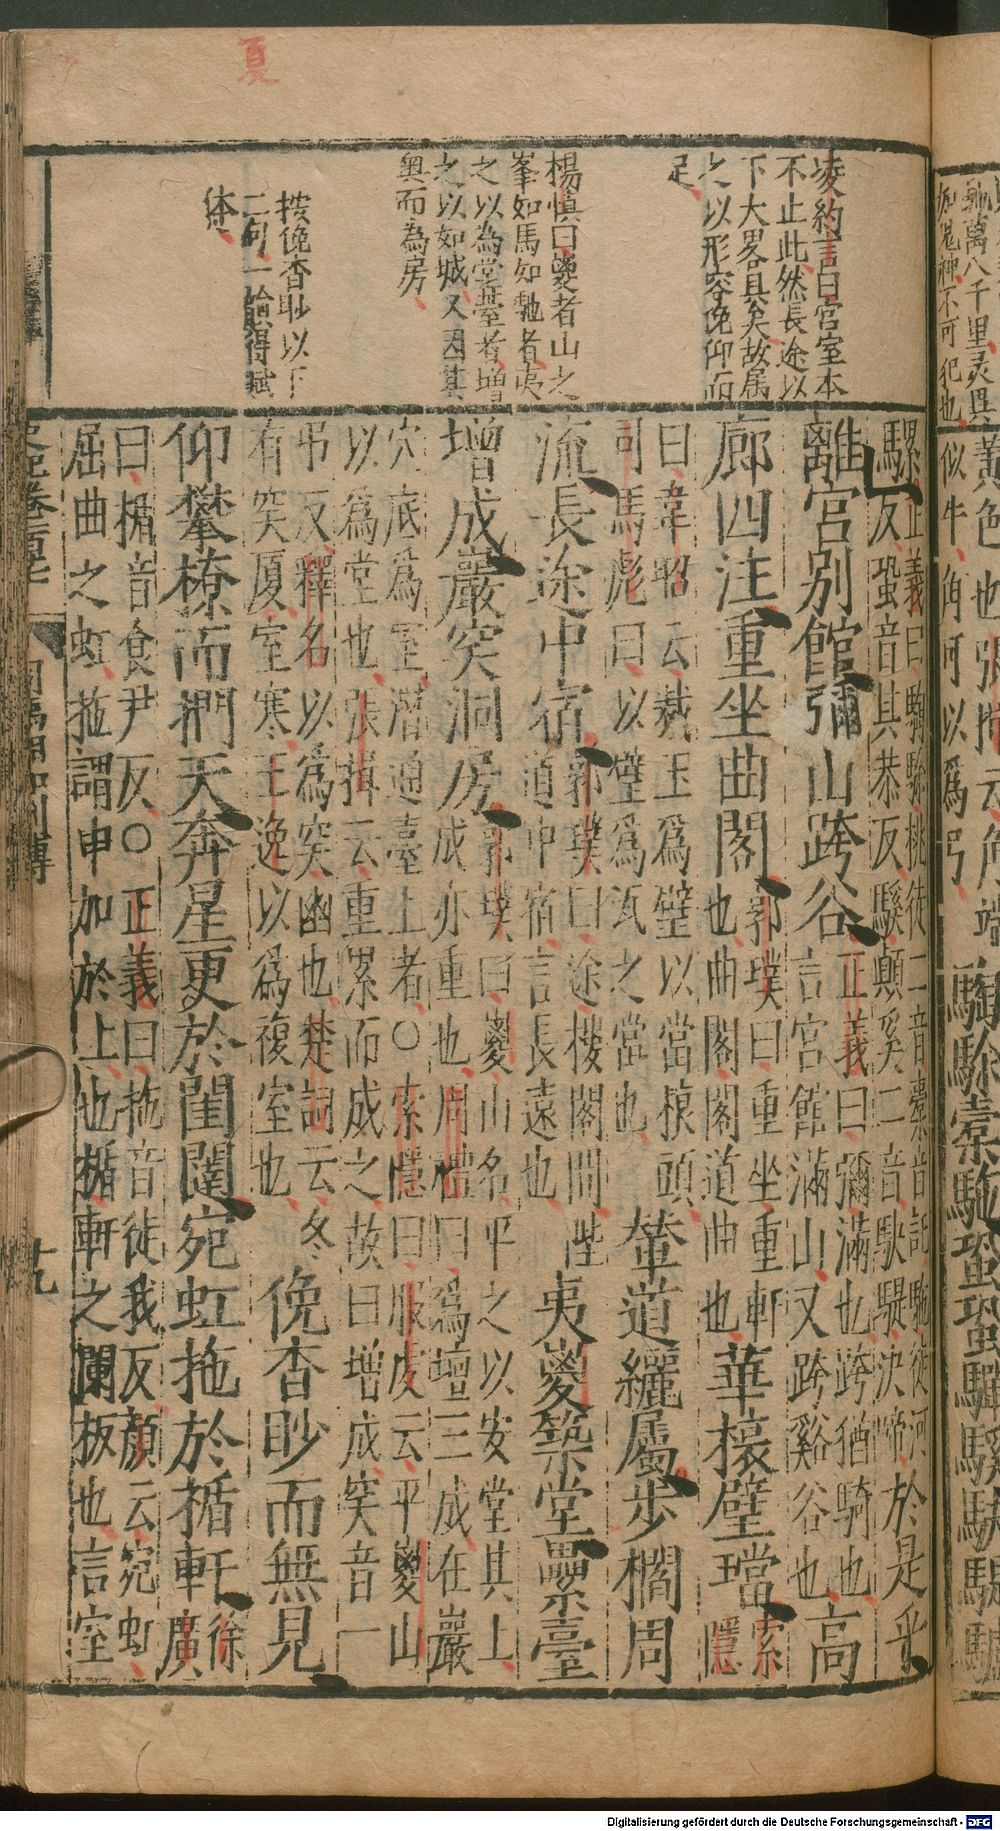 夏
凌約言曰宫室本
不止此然長途以
下大畧具矣故属
之以形容俛仰而
足
楊慎曰嵏者山之
峯如馬如馳者夷
之以為堂臺者增
之以如城又因其
奥而為房
按俛杳眇以下
二句一諭得賦
体
騾正義曰騊駼桃徒二音橐音託駞徒河
反蛩音其恭反驒顛奚二音駃騠決啼於是乎
離宫别館彌山跨谷正義曰彌滿也跨猶騎也
言宫館滿山又跨谿谷也高
廊四注重坐曲閣郭璞曰重坐重軒
也曲閣閣道曲也華榱璧璫索
隱
曰韋昭云裁玉爲璧以當榱頭
司馬彪曰以璧爲瓦之當也輦道纚屬步櫩周
流長途中宿郭璞曰途樓閣間陛
道中宿言長遠也夷嵏築堂纍臺
增成巖突洞房郭璞曰嵏山名平之以安堂其上
成亦重也周禮曰爲壇三成在巖
穴底爲室潛通臺上者○索隱曰服虔云平嵏山
以爲堂也張揖云重累而成之故曰增成突音一
弔反釋名以爲突幽也楚詞云冬
有突厦室寒王逸以爲複室也俛杳眇而無見
仰攀橑而捫天奔星更於閨闥宛虹拖於楯軒徐
廣
曰楯音食尹反○正義曰拖音徒我反顔云宛虹
屈曲之虹拖謂申加於上也楯軒之闌板也言室
似牛角可以爲弓
黄色也張揖云角端騊駼橐駞蛩蛩驒騱駃騠驢
軌萬八千里灵異
如鬼神不可犯也
Digitalisierung gefördert durch die Deutsche Forschungsgemeinschaft - DFG